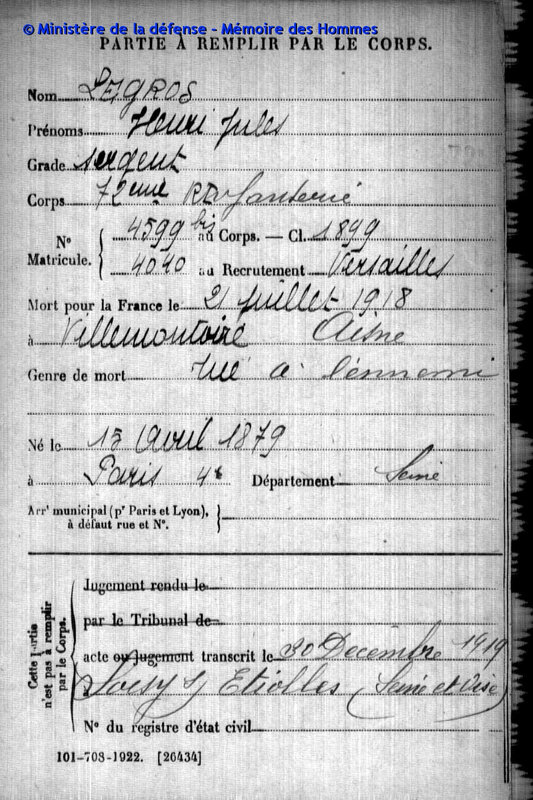 © Ministère de la défense - Mémoire des Hommes
PARTIE À REMPLIR PAR LE CORPS.
Nom LEGROS
Prénoms Henri Jules
Grade sergent
Corps 72eme RI d'Infanterie
N° Matricule. 4599 bis au Corps. — Cl. 1899
4040 au Recrutement Versailles
Mort pour la France le 21 juillet 1918
à Villemontoire Aisne
Genre de mort tué à l'ennemi
Né le 15 avril 1879
à Paris 4e Département Seine
Arrt municipal (pr Paris et Lyon),
à défaut rue et N°.
Cette Partie n'est pas à remplir par le Corps.
Jugement rendu le
par le Tribunal de
acte ou jugement transcrit le 30 Décembre 1919
à Soisy s/ Etiolles (Seine et Oise)
N° du registre d'état civil
101-708-1922. [26434]